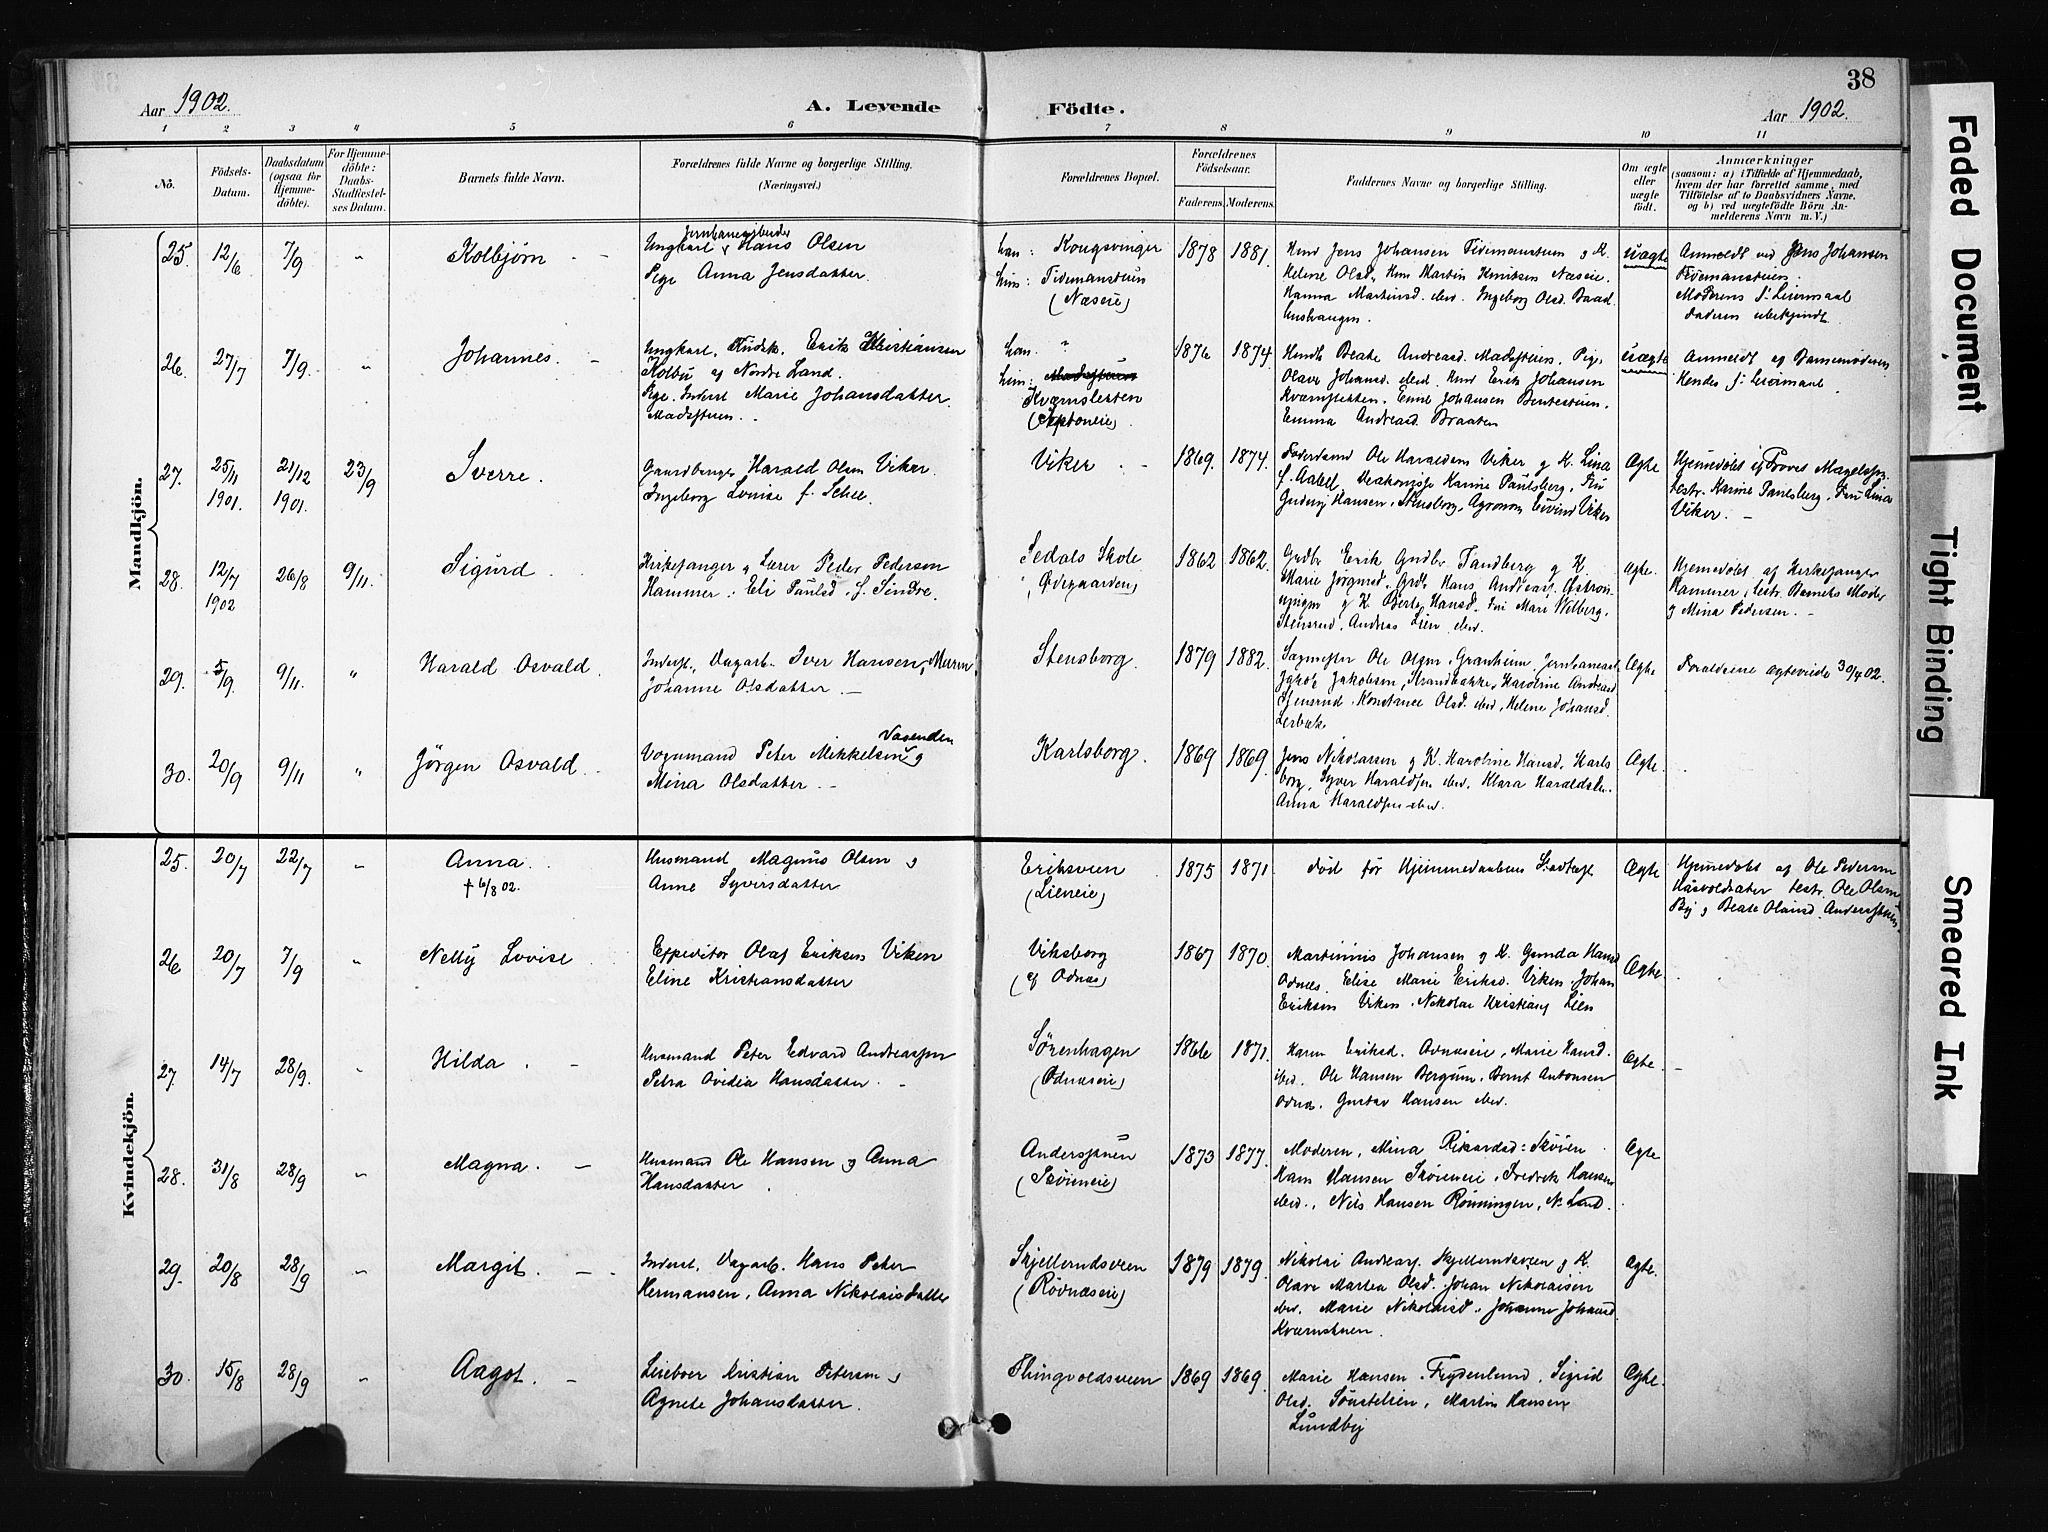 38
Aar 1902. A. Levende Födte. Aar 1902.
1 2 3 4 5 6 7 8 9 10 11
No.
Födsels-
Datum.
Daabsdatum
(ogsaa for
Hjemme-
döbte).
For Hjemme-
döbte:
Daabs-
Stadfæstel-
ses Datum.
Barnets fulde Navn.
Forældrenes fulde Navne og borgerlige Stilling.
(Næringsvei.)
Forældrenes Bopæl.
Forældrenes
Födselsaar.
Faderens. Moderens.
Faddernes Navne og borgerlige Stilling.
Om ægte
eller
uægte
født.
Anmærkninger
(saasom: a) i Tilfælde af Hjemmedaab,
hvem der har forrettet samme, med
Tilföielse af to Daabsvidners Navne,
og b) ved uægtefödte Börn An-
melderens Navn m. V.)
Mandkjön.
25. 12/6 7/9 " Kolbjørn
Jernbanearbeider
Ungkarl Hans Olsen
Pige Anna Jensdatter.
han: Kongsvinger
hun: Tidemanstuen
(Næseie)
1878 1881.
Jens Johansen Tidemanstuen g K.
Helene Olsd, Martin Knutsen Næseie.
Hanna Martinsd. ibid. Ingeborg Olsd. Baad
uægte
Anmeldt ved Jens Johansen
Tidemanstuen.
Moderens 1' Leiermaal
Faderen ubekjendt.
26. 27/7 7/9 " Johannes.
Ungkarl, Erik Kristiansen
Kolbu af Nordre Land.
Pige, Inderst Marie Johansdatter.
Madsstuen.
han. "
hun:
Kværnsletten
1876 1874.
Beate Andreasd. Madsstuen, Pige
Olave Johansd. ibid. Erik Johansen
Kværnsletten, Johansen
Emma Andreasd Braaten
uægte
Anmeldt af
Hendes 1' Leiermaal.
27. 25/11 1901. 21/12 1901. 23/9 Sverre.
Gaardbruger Harald Olsen Viker.
Ingeborg Lovise f. Schee.
Viker
1869. 1874.
Føderaad Ole Haraldsen Viker g K. Lina
f. Aabel, Karine Paulsberg, Fru
Hansen, Stensborg, Agronom Eivind Viker
Ægte
Hjemmedøbt af Provst Magelssen
testr. Karine Paulsberg, Fru Lina
Viker.
28. 12/7 1902 26/8 9/11. Sigurd
Kirkesanger g Lærer Peder Pedersen
Hammer: Eli Paulsd. f. Sindre.
Sedals Skole
1862 1862.
Erik Gudbr Tandberg g K
Marie Jörgensd. Hans Andreas.
g K. Berte Hansd. Mari Velberg.
Stensrud. Andreas Lien ibid.
ægte.
Hjemmedøbt af Kirkesanger
Hammer, testr. Barnets Moder
g Mina Pedersen.
29. 5/9. 9/11. " Harald Osvald.
Inderst, Dagarb. Iver Hansen, Murm
Johanne Olsdatter.
Stensborg.
1879 1882.
Sagmester Ole Olsen, Granheim, Jernbanearb.
Jakob Jakobsen, Strandbakke, Karoline Andreasd
Stensrud. Konstance Olsd. ibid, Helene Johansd.
Ægte
Forældrene ægteviede 30/4 02.
30. 20/9 9/11 " Jørgen Osvald
Vasenden
Vognmand Peter Mikkelsen g
Mina Olsdatter.
Karlsborg.
1869 1869.
Jens Nikolaisen g K. Karoline Hansd. Karls
borg, Syver Haraldsen ibid. Klara Haraldsd.
Anna Haraldsen ibid.
Ægte.
Kvindekjön.
25. 20/7 22/7 " Anna
† 6/8 02.
Husmand Magnus Olsen g
Anne Syversdatter
Eriksveen
(Lieneie)
1875 1871.
død før Hjemmedaabens Stadfæst
Ægte
Hjemmedøbt af Ole Pedersen
testr. Ole Olsen
By g Beate Andersstuen.
26 20/7 7/9 " Nelly Lovise.
Expeditør Olaf Eriksen Viken
Eline Kristiansdatter
Viksborg
af Odnæs)
1867 1870.
Martinius Johansen g K. Gunda Hansd
Odnes. Elise Marie Eriksd. Viken. Johan
Eriksen Viken. Nikolai Kristians Lien
Ægte.
27 14/7 28/9. " Hilda.
Husmand Peter Edvard Andreassen
Petra Ovidia Hansdatter.
Sørenhagen
(Odnæseie)
1866 1871.
Karen Eriksd. Odnæseie, Marie Hansd.
ibid. Ole Hansen Bergum. Bernt Antonsen
Odnæs. Gustav Hansen ibid.
Ægte.
28. 31/8 28/9 " Magna.
Husmand Ole Hansen g Anna
Hansdatter.
Andersstuen
(Skøieneie)
1873 1877.
Moderen, Mina Rikardsd: Skøien
Hans Hansen Skøieneie, Fredrik Hansen
ibid., Nils Hansen Rønningen, N. Land.
Ægte
29. 20/8 28/9 " Margit.
Inderst, Dagarb. Hans Peter
Hermansen, Anna Nikolaisdatter
Skjellerudsveen
(Røvnæseie)
1879 1879.
Nikolai Andreas. Skjellerudsveen g K.
Olave Martea Olsd. Johan Nikolaisen
ibid. Marie Nikolaisd. Johanne Johansd
Kværnstuen.
Ægte.
30. 15/8 28/9 " Aagot.
Leieboer Kristian Petersen g
Agnete Johansdatter.
Thingvoldsveen
1869 1869.
Marie Hansen. Frydenlund, Sigrid
Olsd. Sønstelien, Martin Hansen
Lundby
Ægte.
Faded Document
Tight Binding
Smeared Ink